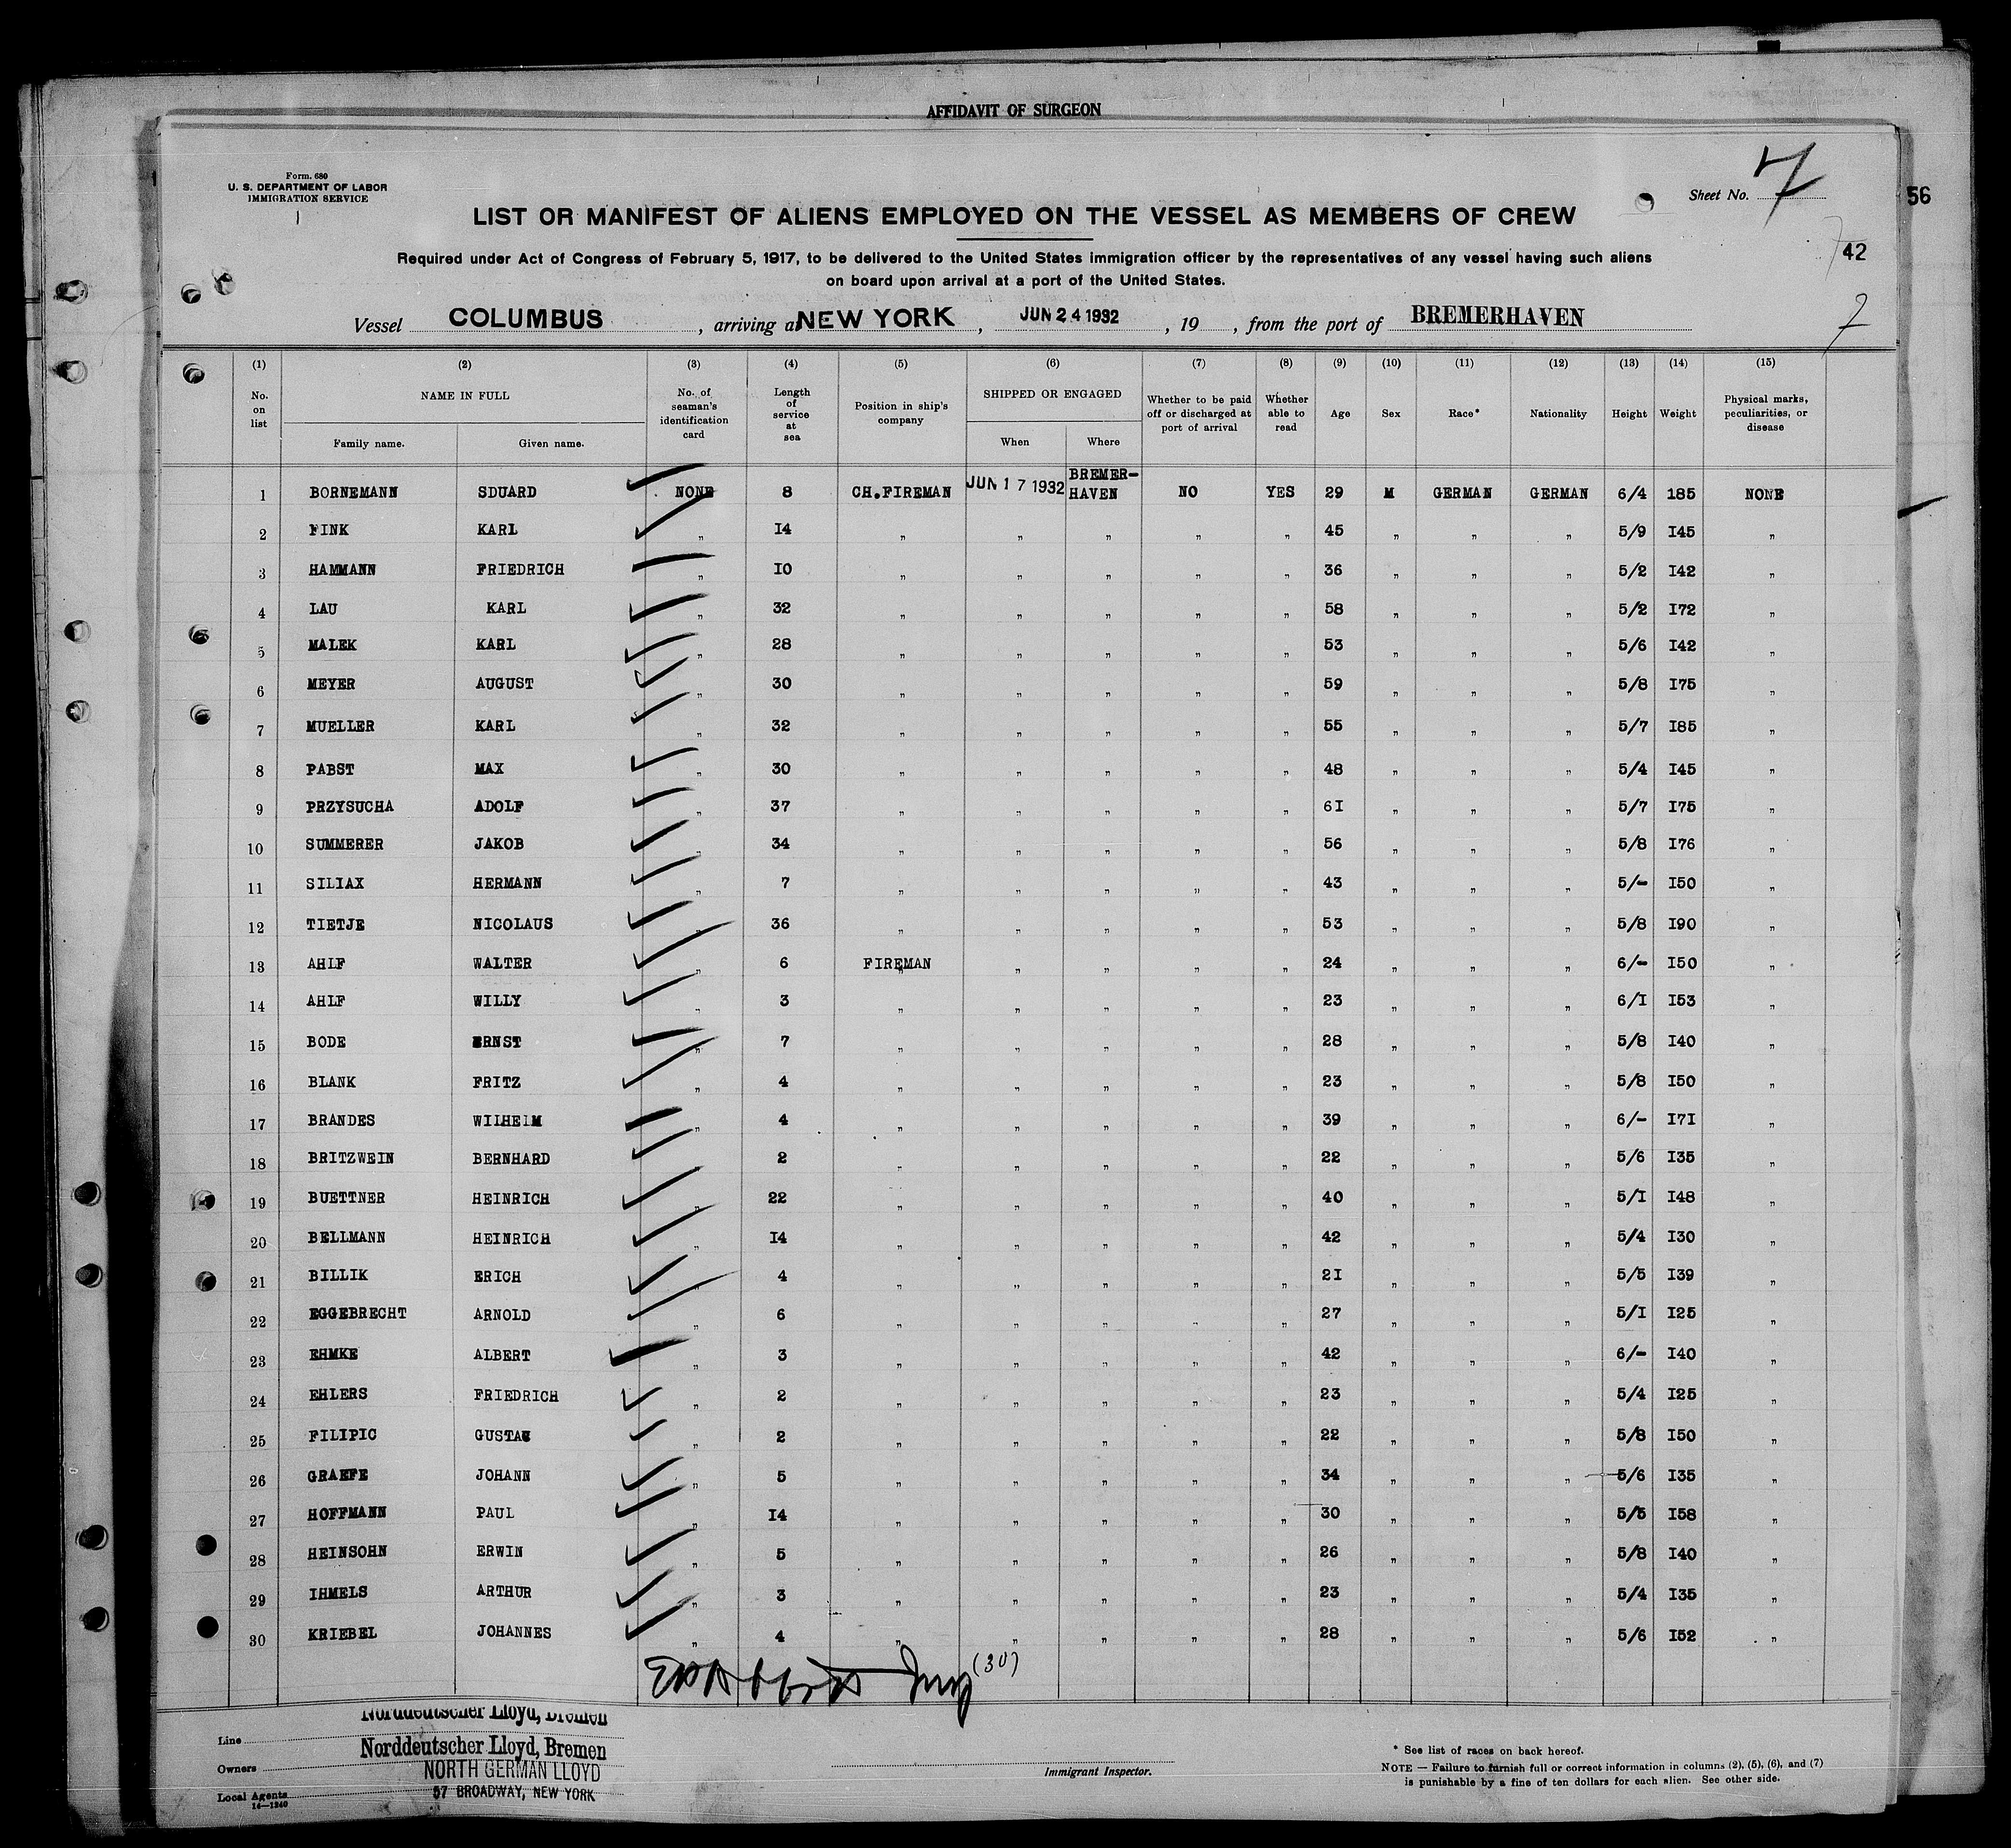 AFFIDAVIT OF SURGEON
Form. 680
U. S. DEPARTMENT OF LABOR
IMMIGRATION SERVICE
Sheet No. 7
56
LIST OR MANIFEST OF ALIENS EMPLOYED ON THE VESSEL AS MEMBERS OF CREW
Required under Act of Congress of February 5, 1917, to be delivered to the United States immigration officer by the representatives of any vessel having such aliens
on board upon arrival at a port of the United States.
42
Vessel COLUMBUS, arriving at NEW YORK, JUN 24 1932, 19 , from the port of BREMERHAVEN
7
(1) (2) (3) (4) (5) (6) (7) (8) (9) (10) (11) (12) (13) (14) (15)
No. on list NAME IN FULL Family name. Given name. No. of seaman's identification card Length of service at sea Position in ship's company SHIPPED OR ENGAGED When Where Whether to be paid off or discharged at port of arrival Whether able to read Age Sex Race* Nationality Height Weight Physical marks, peculiarities, or disease
1 BORNEMANN SDUARD NONE 8 CH.FIREMAN JUN 17 1932 BREMER-HAVEN NO YES 29 M GERMAN GERMAN 6/4 185 NONE
2 FINK KARL " 14 " " " " " 45 " " " 5/9 145 "
3 HAMMANN FRIEDRICH " 10 " " " " " 36 " " " 5/2 142 "
4 LAU KARL " 32 " " " " " 58 " " " 5/2 172 "
5 MALEK KARL " 28 " " " " " 53 " " " 5/6 142 "
6 MEYER AUGUST " 30 " " " " " 59 " " " 5/8 175 "
7 MUELLER KARL " 32 " " " " " 55 " " " 5/7 185 "
8 PABST MAX " 30 " " " " " 48 " " " 5/4 145 "
9 PRZYSUCHA ADOLF " 37 " " " " " 61 " " " 5/7 175 "
10 SUMMERER JAKOB " 34 " " " " " 56 " " " 5/8 176 "
11 SILIAX HERMANN " 7 " " " " " 43 " " " 5/- 150 "
12 TIETJE NICOLAUS " 36 " " " " " 53 " " " 5/8 190 "
13 AHLF WALTER " 6 FIREMAN " " " " 24 " " " 6/- 150 "
14 AHLF WILLY " 3 " " " " " 23 " " " 6/1 153 "
15 BODE ERNST " 7 " " " " " 28 " " " 5/8 140 "
16 BLANK FRITZ " 4 " " " " " 23 " " " 5/8 150 "
17 BRANDES WILHELM " 4 " " " " " 39 " " " 6/- 171 "
18 BRITZWEIN BERNHARD " 2 " " " " " 22 " " " 5/6 135 "
19 BUETTNER HEINRICH " 22 " " " " " 40 " " " 5/1 148 "
20 BELLMANN HEINRICH " 14 " " " " " 42 " " " 5/4 130 "
21 BILLIK ERICH " 4 " " " " " 21 " " " 5/5 139 "
22 EGGEBRECHT ARNOLD " 6 " " " " " 27 " " " 5/1 125 "
23 EHMKE ALBERT " 3 " " " " " 42 " " " 6/- 140 "
24 EHLERS FRIEDRICH " 2 " " " " " 23 " " " 5/4 125 "
25 FILIPIC GUSTAV " 2 " " " " " 22 " " " 5/8 150 "
26 GRAEFE JOHANN " 5 " " " " " 34 " " " 5/6 135 "
27 HOFFMANN PAUL " 14 " " " " " 30 " " " 5/5 158 "
28 HEINSOHN ERWIN " 5 " " " " " 26 " " " 5/8 140 "
29 IHMELS ARTHUR " 3 " " " " " 23 " " " 5/4 135 "
30 KRIEBEL JOHANNES " 4 " " " " " 28 " " " 5/6 152 "
(30)
Norddeutscher Lloyd, Bremen
Line
Norddeutscher Lloyd, Bremen
Owners NORTH GERMAN LLOYD
Local Agents 57 BROADWAY, NEW YORK
14—1240
Immigrant Inspector.
* See list of races on back hereof.
NOTE — Failure to furnish full or correct information in columns (2), (5), (6), and (7)
is punishable by a fine of ten dollars for each alien. See other side.